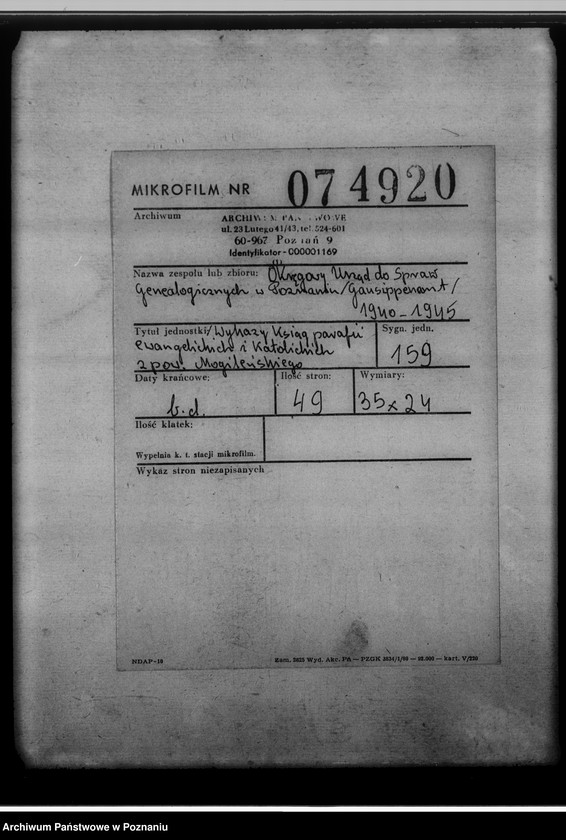 MIKROFILM NR 074920
Archiwum
ARCHIWUM PAŃSTWOWE
ul. 23 Lutego 41/43, tel. 524-601
60-967 Poznań 9
Identyfikator - 000001169
Nazwa zespołu lub zbioru: Okręgowy Urząd do Spraw
Genealogicznych w Poznaniu /Gausippenamt/
1940-1945
Tytuł jednostki: /Wykazy Ksiąg parafii
ewangelickich i Katolickich
z pow. Mogileńskiego
Sygn. jedn.
159
Daty krańcowe:
b.d.
Ilość stron:
49
Wymiary:
35x24
Ilość klatek:
Wypełnia k. t. stacji mikrofilm.
Wykaz stron niezapisanych
NDAP-18
Zam. 2625 Wyd. Akc. PA — PZGK 2624/I/80 — 62.000 — kart. V/220
Archiwum Państwowe w Poznaniu